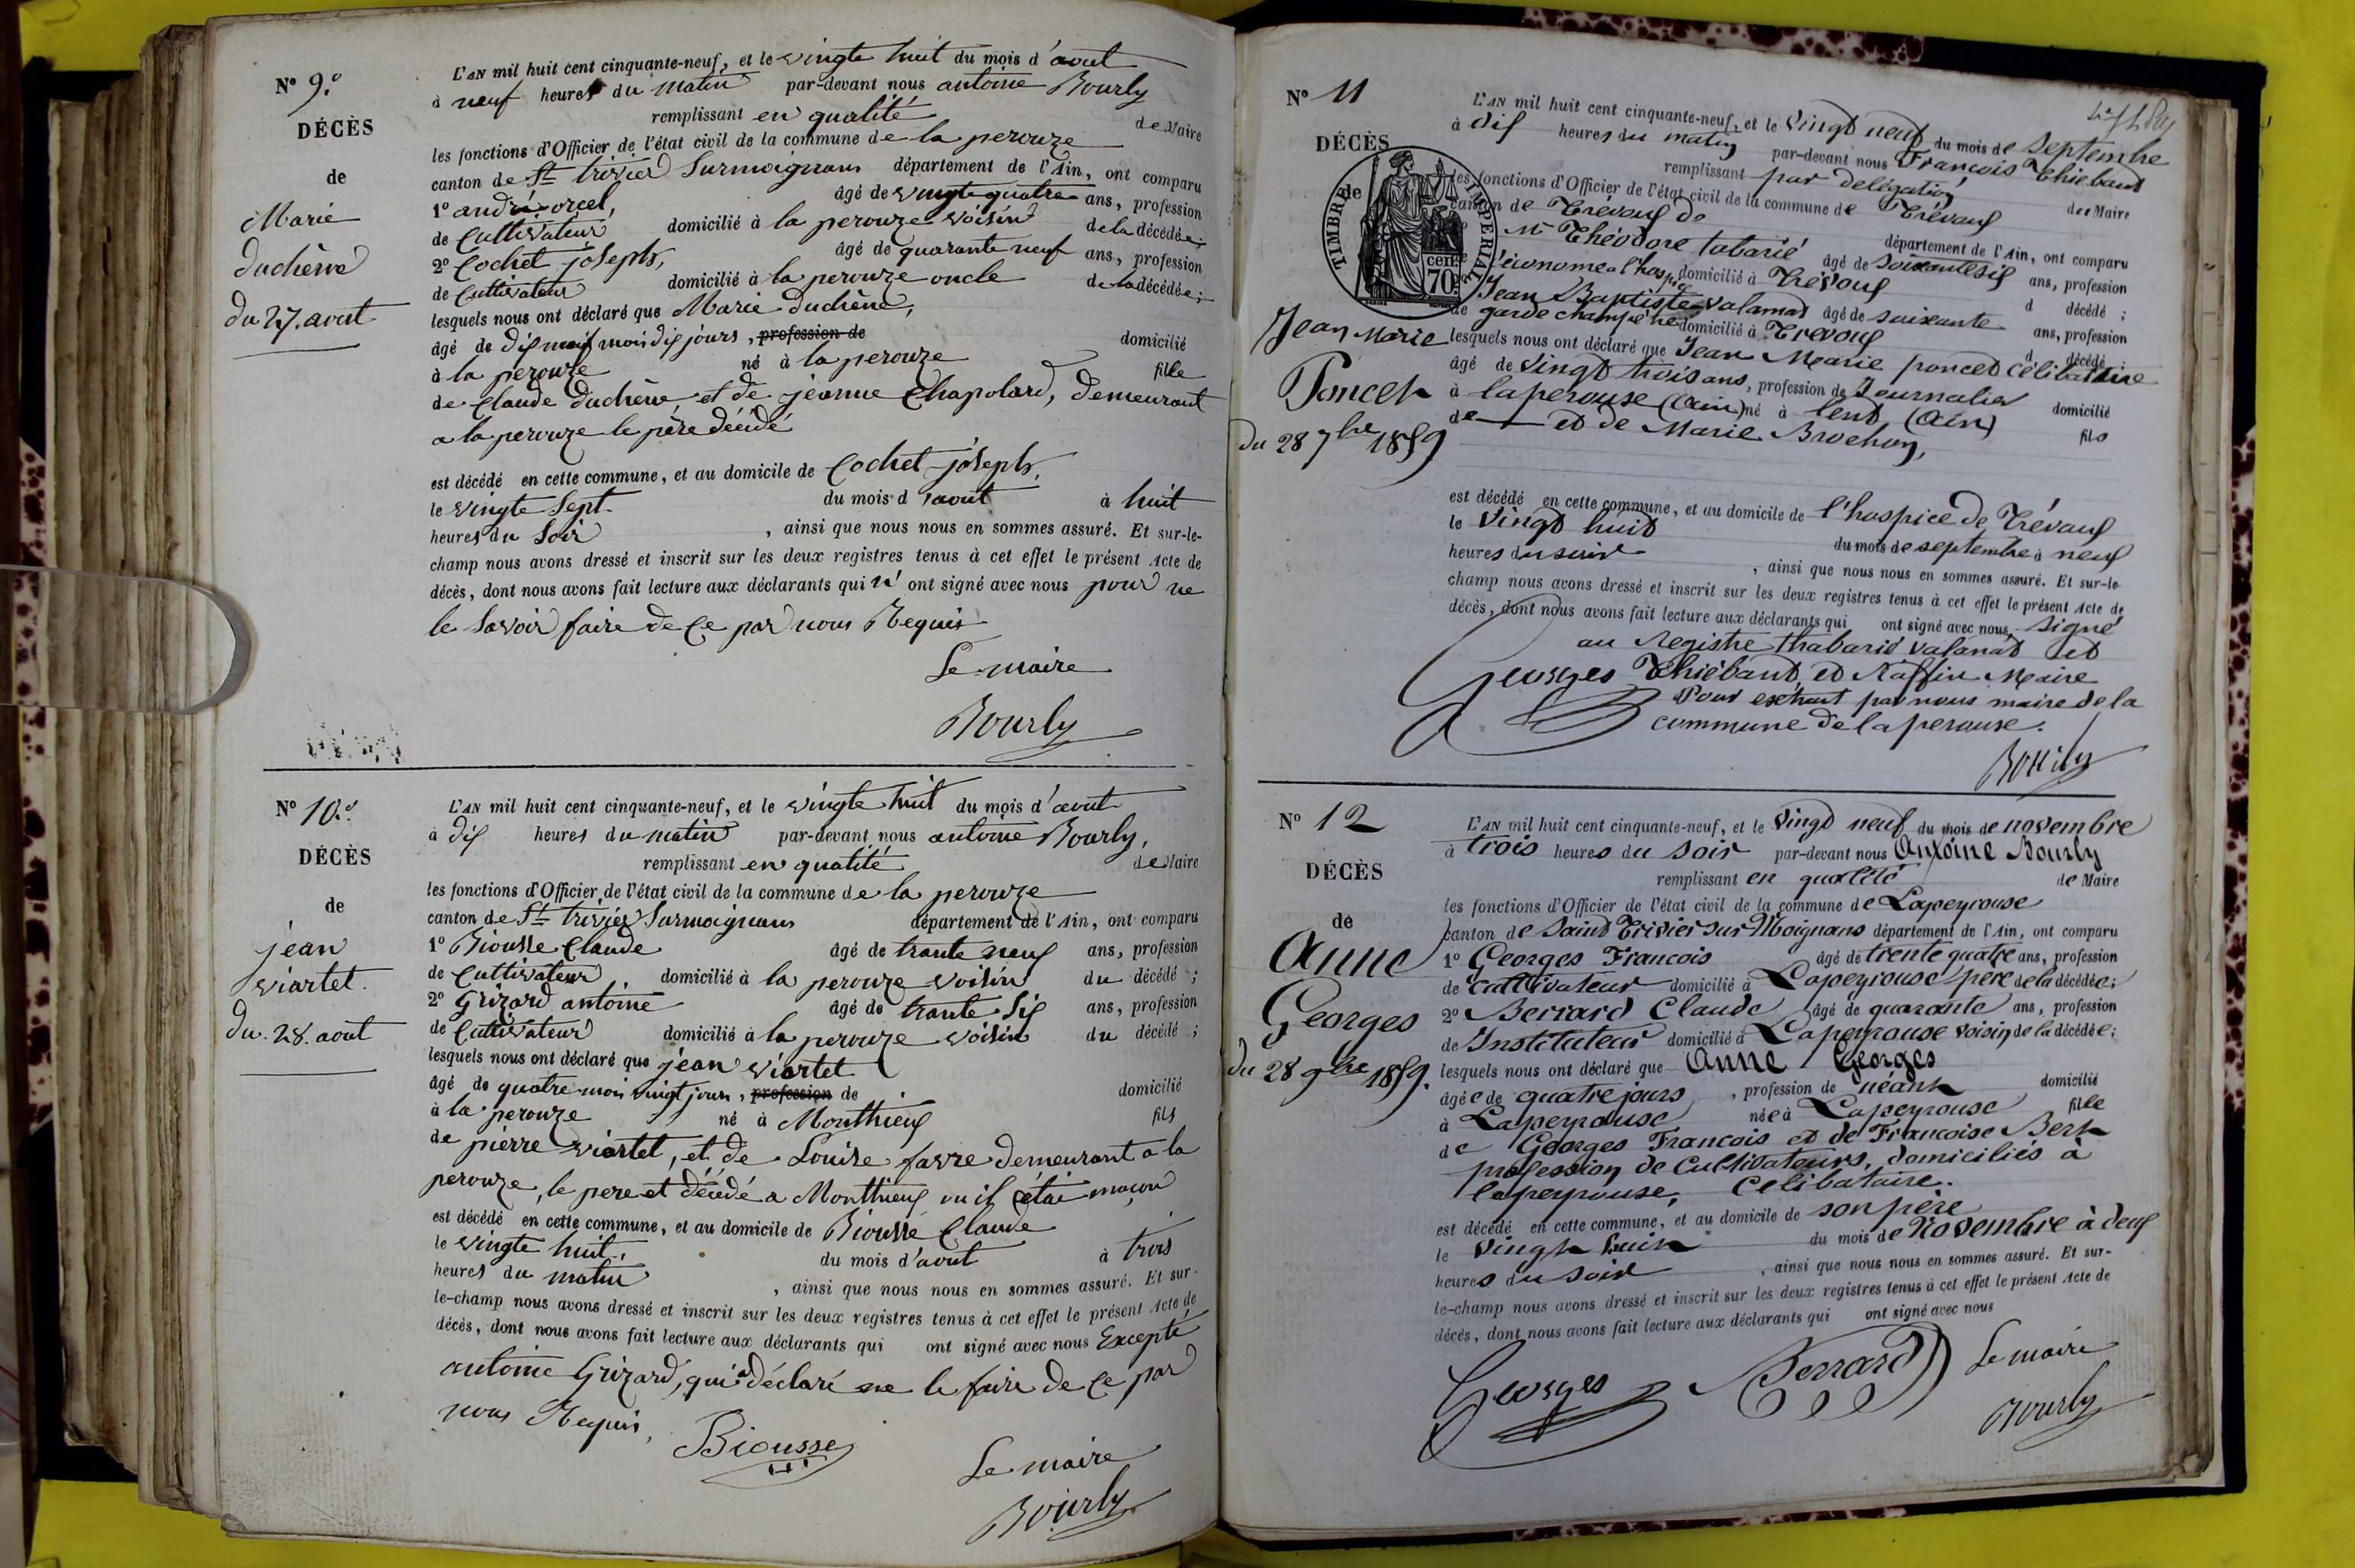 N° 9.°
DÉCÈS
de
Marie
duchêne
du 27. avout
L'AN mil huit cent cinquante-neuf, et le vingte huit du mois d'avout
à neuf heures du matin par-devant nous antoine Bourly
remplissant en qualité de Maire
les fonctions d'Officier de l'état civil de la commune de la perouze
canton de St trivier Surmoignans département de l'Ain, ont comparu
1° andré orcel, âgé de vingte quatre ans, profession
de Cultivateur domicilié à la perouze voisin de la décédée;
2° Cochet joseph, âgé de quarante neuf ans, profession
de Cultivateur domicilié à la perouze oncle de la décédée;
lesquels nous ont déclaré que Marie duchêne,
âgé de dix neuf moi dix jours, profession de domicilié
à la perouze né à la perouze fille
de Claude duchêne et de jeanne Chapolard, demeurant
a la perouze le père décédé
est décédé en cette commune, et au domicile de Cochet joseph,
le vingte Sept. du mois d'avout à huit
heures du Soir, ainsi que nous nous en sommes assuré. Et sur-le-
champ nous avons dressé et inscrit sur les deux registres tenus à cet effet le présent Acte de
décès, dont nous avons fait lecture aux déclarants qui n'ont signé avec nous pour ne
le Savoir faire de Ce par nous Requis
Le maire
Bourly
N° 10.°
DÉCÈS
de
jean
viartet.
Du. 28. aout
L'AN mil huit cent cinquante-neuf, et le vingte huit du mois d'avout
à dix heures du matin par-devant nous antoine Bourly,
remplissant en qualité de Maire
les fonctions d'Officier de l'état civil de la commune de la perouze
canton de St trivier Surmoignans département de l'Ain, ont comparu
1° Biousse Claude âgé de trante neuf ans, profession
de Cultivateur domicilié à la perouze voisin du décédé;
2° Grizard antoine âgé de trante Six ans, profession
de Cultivateur domicilié à la perouze voisin du décédé;
lesquels nous ont déclaré que jean viartet
âgé de quatre moi vingt jours, profession de domicilié
à la perouze né à Monthieux fils
de pierre viartet, et de Louise favre demeurant a la
perouze, le pere et décédé a Monthieux ou il étai maçon
est décédé en cette commune, et au domicile de Biousse Claude
le vingte huit. du mois d'avout à trois
heures du matin, ainsi que nous nous en sommes assuré. Et sur-
le-champ nous avons dressé et inscrit sur les deux registres tenus à cet effet le présent Acte de
décès, dont nous avons fait lecture aux déclarants qui ont signé avec nous Excepté
antoine Grizard, qui a déclaré ne le faire de Ce par
nous Requis,
Biousse
Le maire
Bourly
N° 11
DÉCÈS
de
Jean Marie
Poncet
du 28 7bre 1859
TIMBRE IMPERIAL
70 cen.
L'AN mil huit cent cinquante-neuf, et le vingt neuf du mois de septembre
à dix heures du matin par-devant nous François Thiebaud
remplissant par delégation de Maire
les fonctions d'Officier de l'état civil de la commune de Trévoux
canton de Trévoux de département de l'Ain, ont comparu
Mr Théodore tabarié âgé de soixante six ans, profession
d'économe a l'hospice domicilié à Trévoux d décédé;
Jean Baptiste valanad âgé de soixante ans, profession
de garde champêtre domicilié à Trévoux d décédé;
lesquels nous ont déclaré que Jean Marie poncet Célibataire
âgé de vingt trois ans, profession de Journalier domicilié
à laperouse (ain) né à lent (ain) fils
de et de Marie Brochon,
est décédé en cette commune, et au domicile de l'hospice de Trévoux
le vingt huit du mois de septembre à neuf
heures du soir, ainsi que nous nous en sommes assuré. Et sur-le-
champ nous avons dressé et inscrit sur les deux registres tenus à cet effet le présent Acte de
décès, dont nous avons fait lecture aux déclarants qui ont signé avec nous, signé
au Registre thabarié valanad et
Thiébaud, et Raffin Maire
Georges
Pour extrait par nous maire de la
commune de la perouse.
Bourly
N° 12
DÉCÈS
de
Anne
Georges
du 28 9bre 1859.
L'AN mil huit cent cinquante-neuf, et le vingt neuf du mois de novembre
à trois heures du soir par-devant nous Antoine Bourly
remplissant en qualité de Maire
les fonctions d'Officier de l'état civil de la commune de Lapeyrouse
canton de Saint Trivier sur Moignans département de l'Ain, ont comparu
1° Georges Francois âgé de trente quatre ans, profession
de cultivateur domicilié à Lapeyrouse père de la décédée;
2° Berrard Claude âgé de quarante ans, profession
de Instituteur domicilié à Lapeyrouse voisin de la décédée;
lesquels nous ont déclaré que Anne Georges
âgée de quatre jours, profession de néant domicilié
à Lapeyrouse née à Lapeyrouse fille
de Georges Francois et de Francoise Bert
profession de Cultivateurs, domiciliés à
lapeyrouse, Celibataire.
est décédé en cette commune, et au domicile de son père
le vingt huit du mois de Novembre à deux
heures du soir, ainsi que nous nous en sommes assuré. Et sur-
le-champ nous avons dressé et inscrit sur les deux registres tenus à cet effet le présent Acte de
décès, dont nous avons fait lecture aux déclarants qui ont signé avec nous
Georges
Berrard
Le maire
Bourly